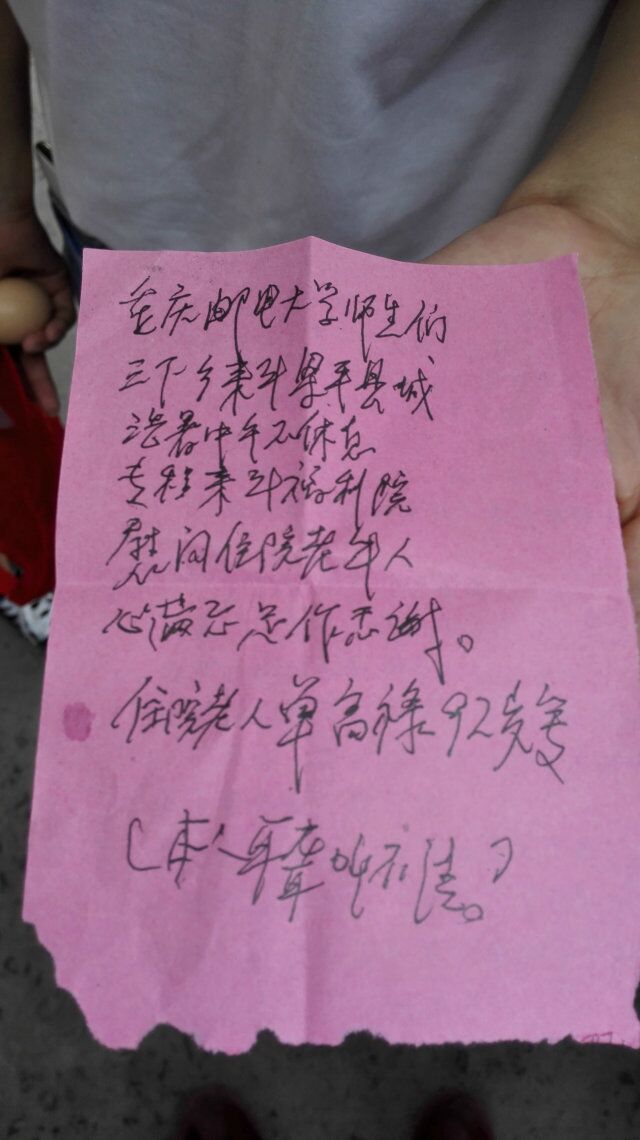 重庆邮电大学师生们
三下乡来到梁平县城
中午不休息
专程来到福利院
慰问住院老年人
作恭谢。
住院老人单高禄92岁写
(本人耳聋听不清。)